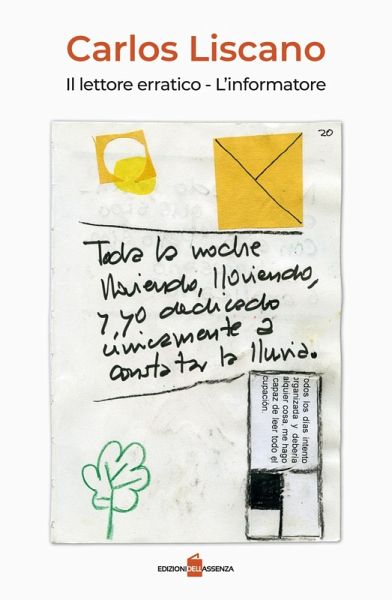 Carlos Liscano
Il lettore erratico - L'informatore
20
Toda la noche
lloviendo, lloviendo,
y yo dedicado
únicamente a
constatar la lluvia.
odos los días intento
organizada y debería
alquier cosa, me hago
capaz de leer todo el
cupación.
EDIZIONIDELL'ASSENZA